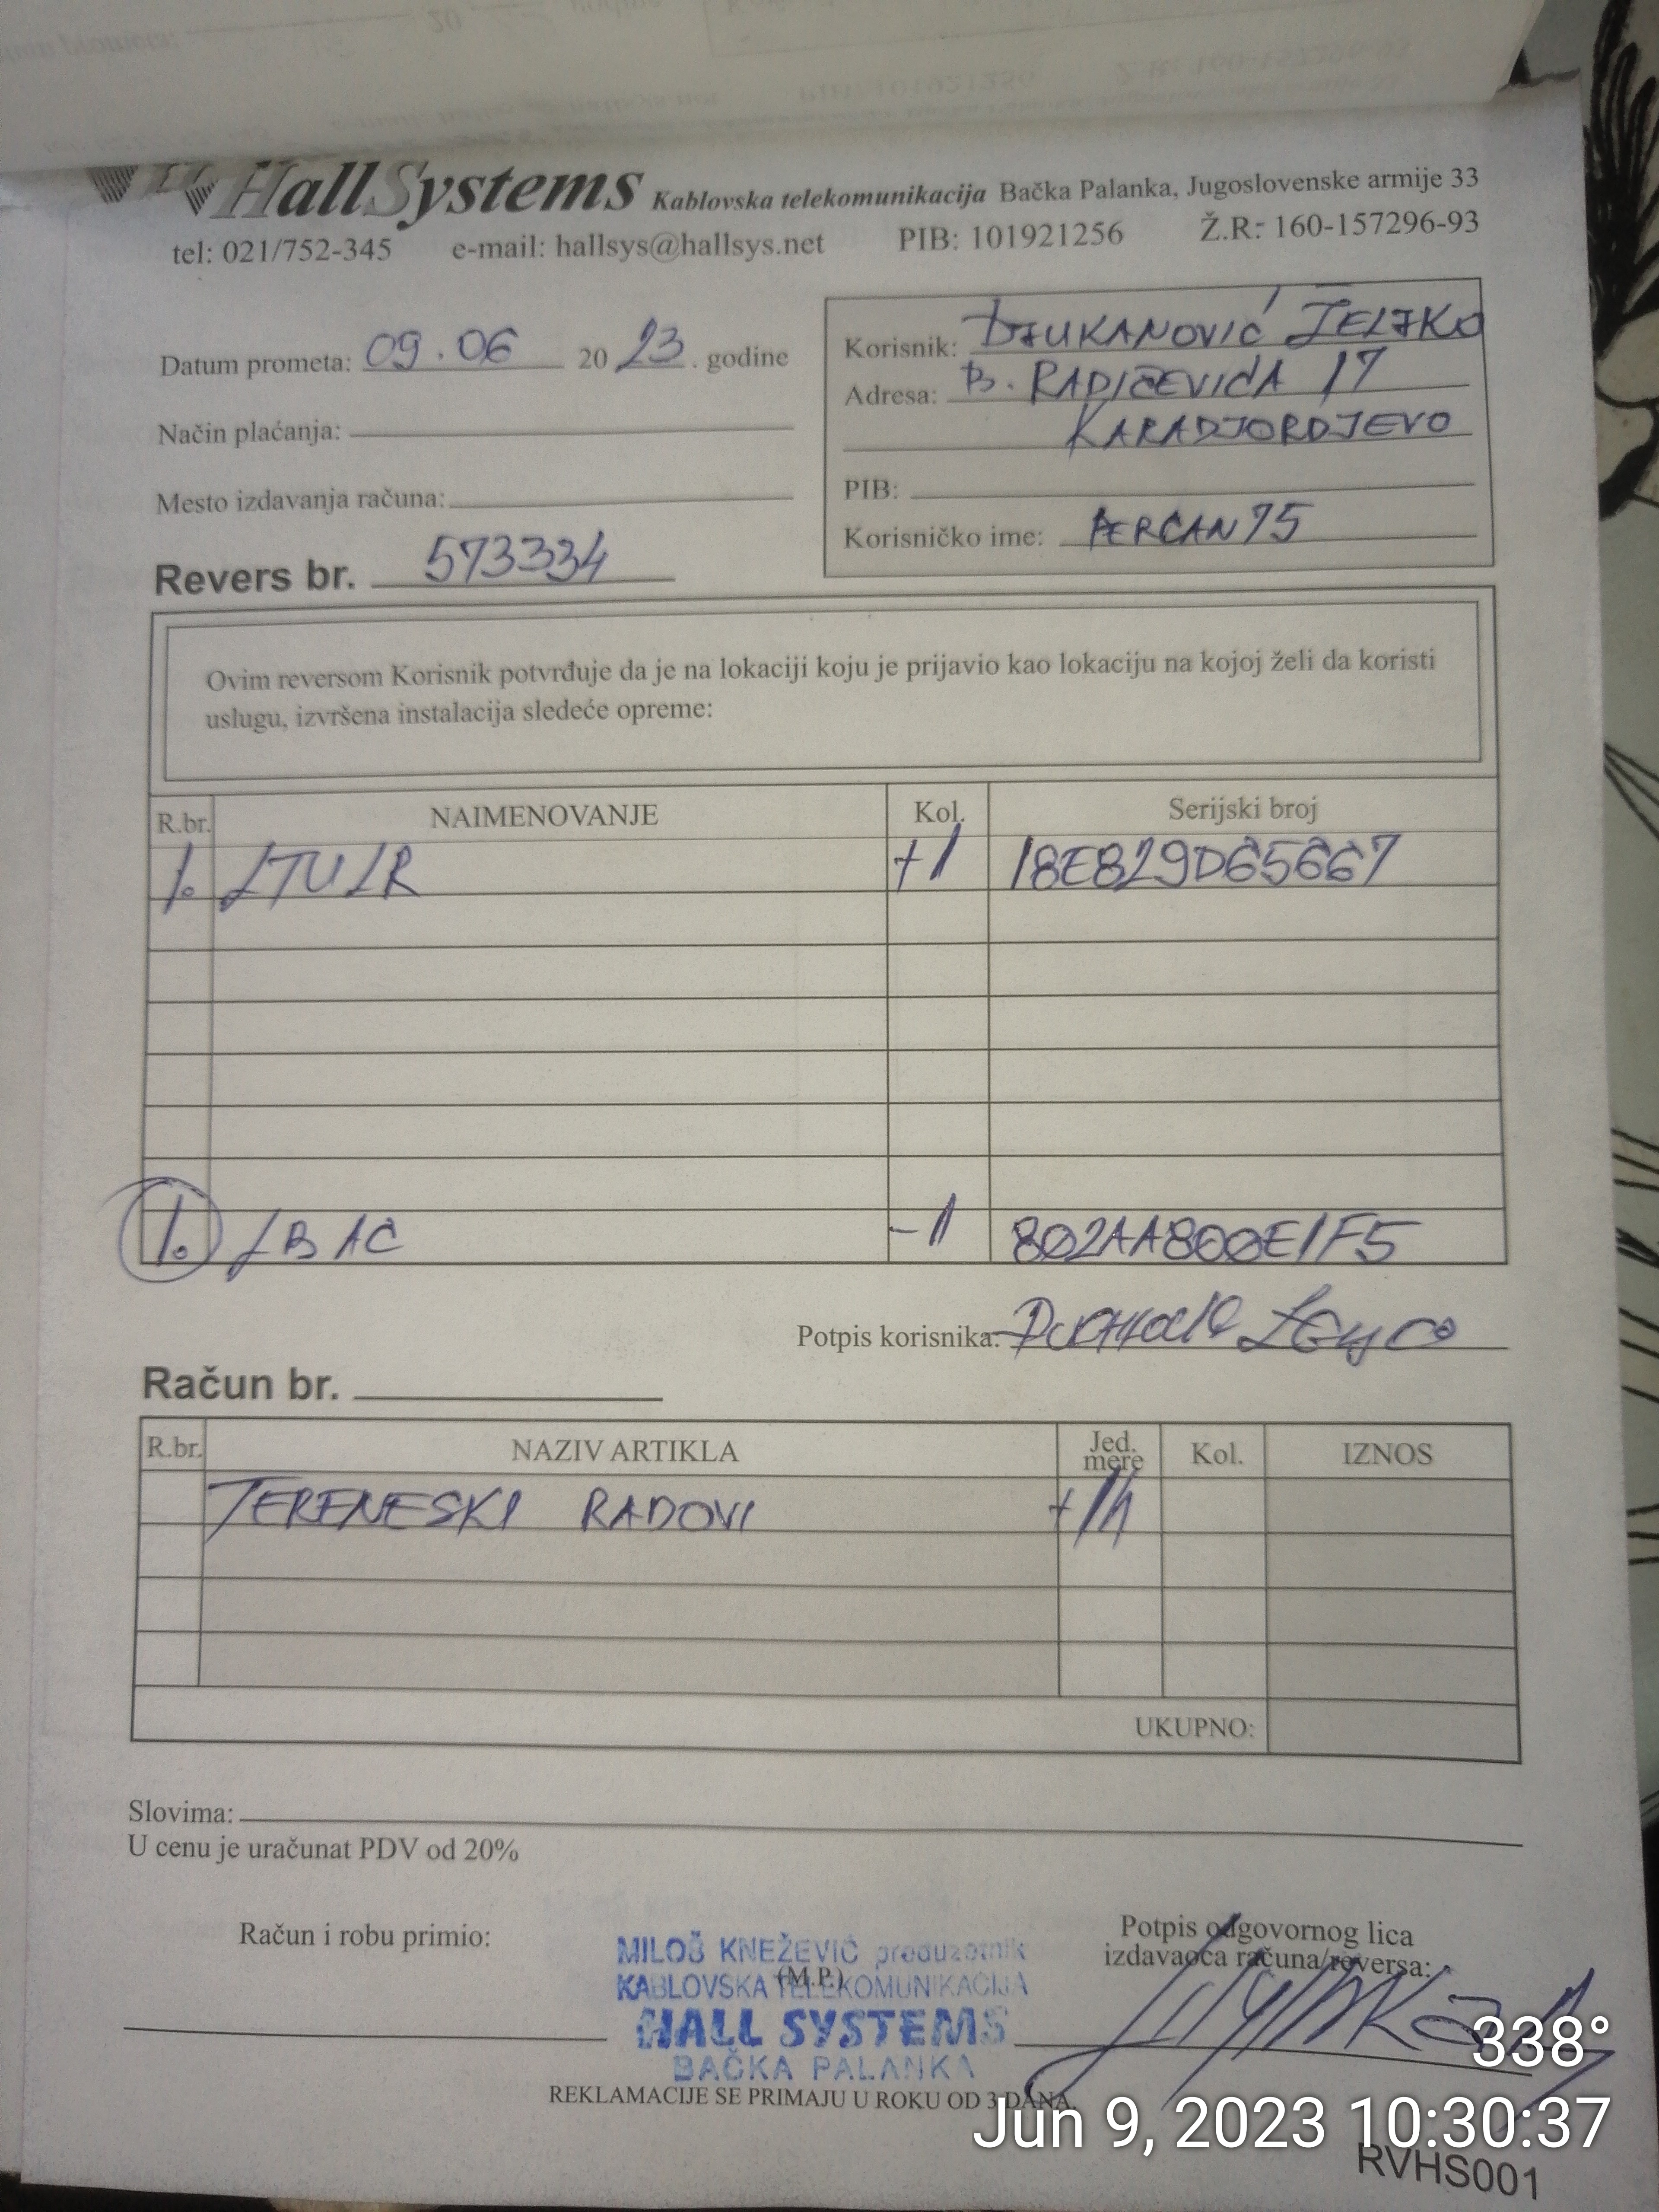 HallSystems Kablovska telekomunikacija Bačka Palanka, Jugoslovenske armije 33
tel: 021/752-345 e-mail: hallsys@hallsys.net PIB: 101921256 Ž.R: 160-157296-93
Datum prometa: 09.06 2023. godine
Način plaćanja:
Mesto izdavanja računa:
Revers br. 573334
Korisnik: DJUKANOVIĆ ŽELJKO
Adresa: B. RADIČEVIĆA 17
KARADJORDJEVO
PIB:
Korisničko ime: PERCAN75
Ovim reversom Korisnik potvrđuje da je na lokaciji koju je prijavio kao lokaciju na kojoj želi da koristi
uslugu, izvršena instalacija sledeće opreme:
R.br. NAIMENOVANJE Kol. Serijski broj
1. LTU LR +1 18E829D65667
1. LB AC -1 802AA800E1F5
Potpis korisnika:
Račun br.
R.br. NAZIV ARTIKLA Jed. mere Kol. IZNOS
TERENESKI RADOVI +1h
UKUPNO:
Slovima:
U cenu je uračunat PDV od 20%
Račun i robu primio:
MILOŠ KNEŽEVIĆ preduzetnik
(M.P.)
KABLOVSKA TELEKOMUNIKACIJA
HALL SYSTEMS
BAČKA PALANKA
Potpis odgovornog lica
izdavaoca računa/reversa:
REKLAMACIJE SE PRIMAJU U ROKU OD 3 DANA.
338°
Jun 9, 2023 10:30:37
RVHS001